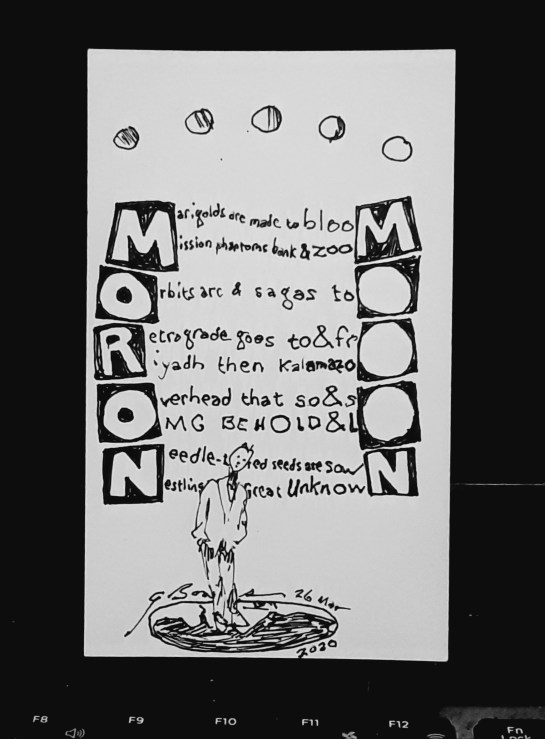 Marigolds are made to blooM
Mission phantoms bank & zooM
Orbits arc & sagas toO
Retrograde goes to&frO
Riyadh then KalamazoO
Overhead that so&sO
OMG BEHOLD&LO
Needle- seeds are sowN
Nestling Great UnknowN
26 Mar
2020
F8 F9 F10 F11 F12 Fn
Lock